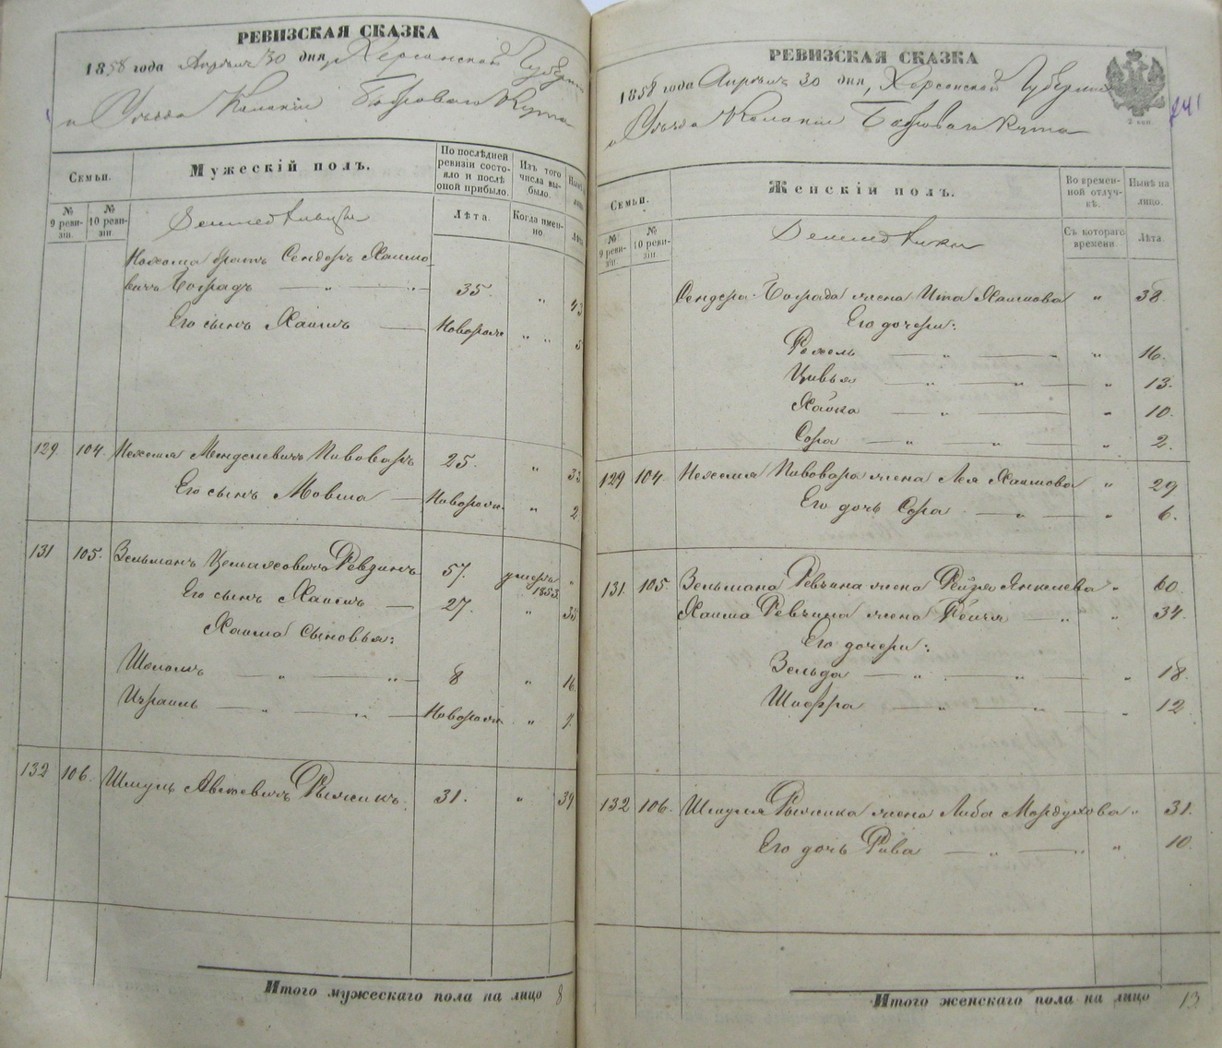 РЕВИЗСКАЯ СКАЗКА
1858 года Апрѣля 30 дня, Херсонской Губерніи
и Уѣзда Колоніи Бобровый Кутъ
Семьи.
Мужескій полъ.
По послѣдней ревизіи состояло и послѣ оной прибыло.
Изъ того числа выбыло.
№ 9 ревизіи.
№ 10 ревизіи.
Земледѣльцы
Лѣта.
Когда именно.
Нохома братъ Сендеръ Хаимо-
вичъ Бограда — „ — „ — 35. „ 43
Его сынъ Хаимъ — Новорож „ „ 5
129. 104. Нехемія Менделевичъ Пивоваръ 25. „ 33
Его сынъ Мовша — Новорожд. „ 2
131 105. Зельманъ Цемаховичъ Ревзинъ 57. умеръ 1853. „
Его сынъ Хаимъ — 27. „ 35
Хаима сыновья:
Шоломъ — „ — „ — 8 „ 16
Израиль — „ — „ — Новорожд „ 7.
132 106. Шмуль Авжевичъ Рыжикъ. 31. „ 39
Итого мужескаго пола на лицо 8
РЕВИЗСКАЯ СКАЗКА
1858 года Апрѣля 30 дня, Херсонской Губерніи
и Уѣзда Колоніи Бобровый Кутъ
241
Семьи.
Женскій полъ.
Во временной отлучкѣ.
Нынѣ на лицо.
№ 9 ревизіи.
№ 10 ревизіи.
Съ котораго времени.
Лѣта.
Сендера Бограда жена Ита Хаимова „ 38.
Его дочери:
Рахель — „ — „ 16.
Цивья — „ — „ — „ 13.
Хайка — „ — „ 10.
Сора — „ — „ — „ 2.
129 104. Нехемія Пивовара жена Лея Хаимова „ 29
Его дочь Сора — „ — „ 6.
131. 105. Зельмана Ревзина жена Рейзя Янкелева „ 60.
Хаима Ревзина жена — „ „ 34.
Его дочери:
Зельда — „ — „ — „ 18.
Шифра — „ — „ — „ 12
132 106. Шмуля Рыжика жена Либа Мордухова „ 31.
Его дочь Рива — „ — „ „ 10
Итого женскаго пола на лицо 13